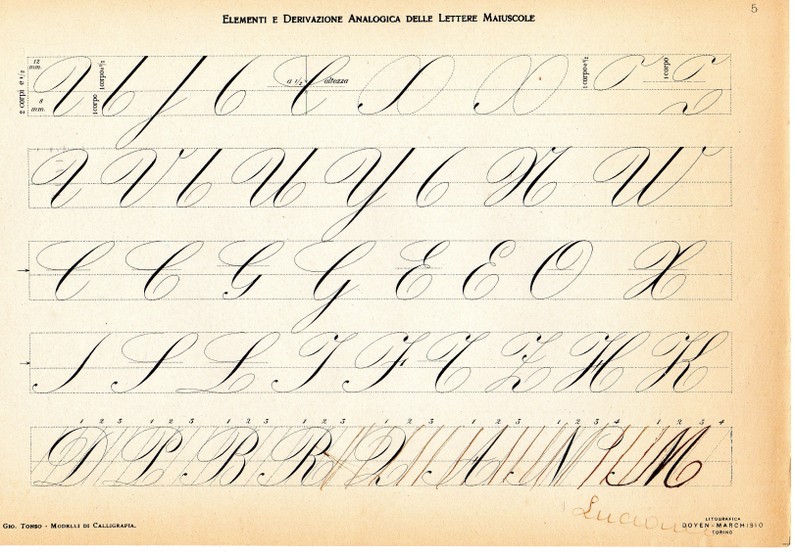 5
ELEMENTI E DERIVAZIONE ANALOGICA DELLE LETTERE MAIUSCOLE
2 corpi e 1/2 12 mm. 8 mm. 1 corpo 1 corpo e 1/2 a 1/2 altezza 1 corpo e 1/2 1 corpo
I V I U Y C N W
C C G G E E O X
I S L T F T Z H K
1 2 3 1 2 3 1 2 3 1 2 3 1 2 3 1 2 3 1 2 3 4 1 2 3 4
D P B R Q A N M
Luciana
GIO. TONSO - MODELLI DI CALLIGRAFIA.
LITOGRAFICA
DOYEN-MARCHISIO
TORINO